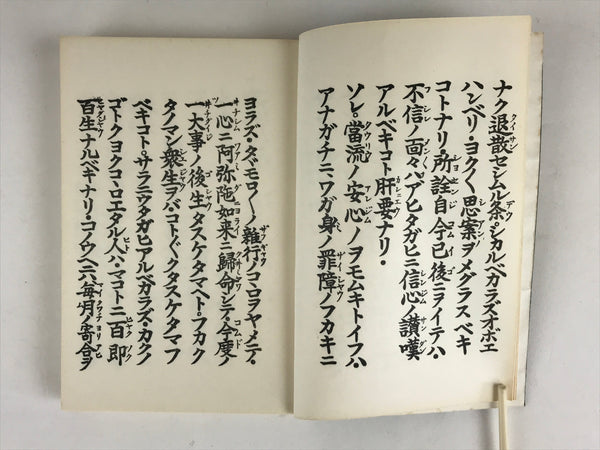 ナク退散セシムル条シカルベカラズオボエ
ハンベリ・ヨク〱思案ヲメグラスベキ
コトナリ所詮自今已後ニヲイテハ・
不信ノ面々ハ・アヒタガヒニ信心ノ讃嘆
アルベキコト肝要ナリ・
ソレ當流ノ安心ノヲモムキトイフハ
アナガチニ・ワガ身ノ罪障ノフカキニ
ヨラズ・タヾモロ〱ノ雜行ノコヽロヲヤメテ・
一心ニ阿弥陀如来ニ歸命シテ・今度ノ
一大事ノ後生タスケタマヘト・フカク
タノマン衆生ヲバ・コト〲クタスケタマフ
ベキコト・サラニウタガヒアルベカラズ・カクノ
ゴトクヨクコヽロエタル人ハ・マコトニ百即
百生ナルベキナリ・コノウヘニハ毎月ノ寄合ヲ